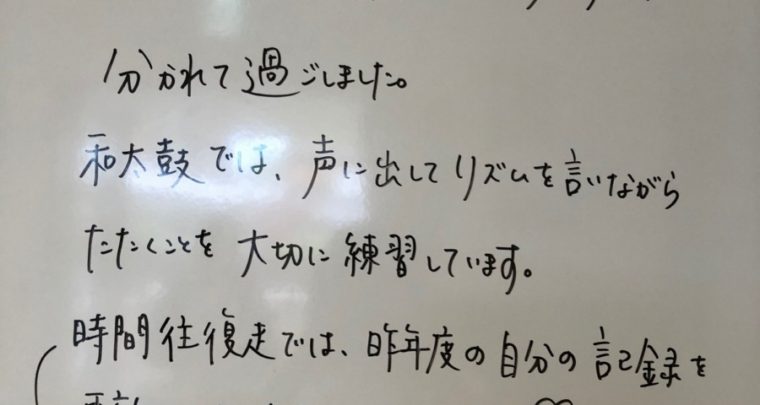 分かれて過ごしました。
和太鼓では、声に出してリズムを言いながら
たたくことを大切に練習しています。
時間往復走では、昨年度の自分の記録を